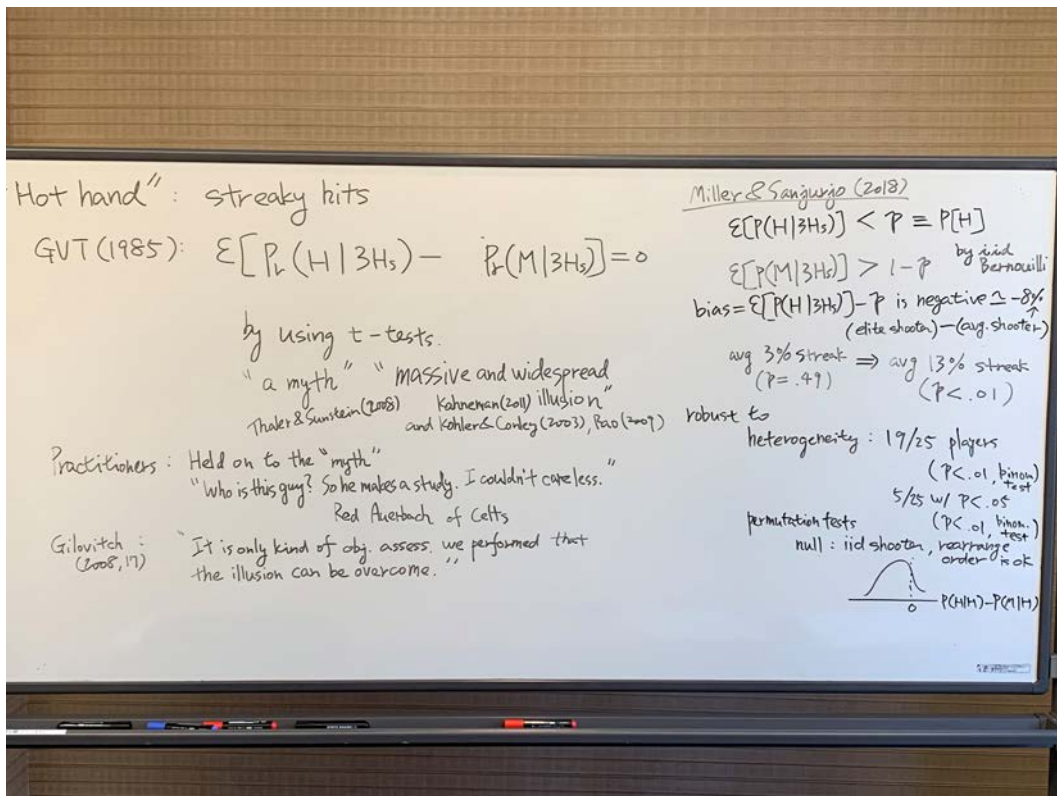 "Hot hand": streaky hits
GVT (1985): Ɛ[Pr(H|3Hs) - Pr(M|3Hs)] = 0
by using t-tests.
"a myth" "massive and widespread
Thaler & Sunstein (2008) Kahneman (2011) illusion"
and Kohler & Conley (2003), Rao (2009)
Practitioners: Held on to the "myth"
"Who is this guy? So he makes a study. I couldn't care less."
Red Auerbach of Celts
Gilovitch: "It is only kind of obj. assess. we performed that
(2008, 17) the illusion can be overcome."
Miller & Sanjurjo (2018)
Ɛ[P(H|3Hs)] < p ≡ P[H]
Ɛ[P(M|3Hs)] > 1-p by iid
Bernouilli
bias = Ɛ[P(H|3Hs)] - p is negative ≃ -8%
↑
(elite shooter) - (avg. shooter)
avg 3% streak ⇒ avg 13% streak
(P = .49) (P < .01)
robust to
heterogeneity: 19/25 players
(P < .01, binom
test)
5/25 w/ P < .05
permutation tests (P < .01, binom.
test)
null: iid shooter, rearrange
order is ok
0 P(H|H) - P(M|H)